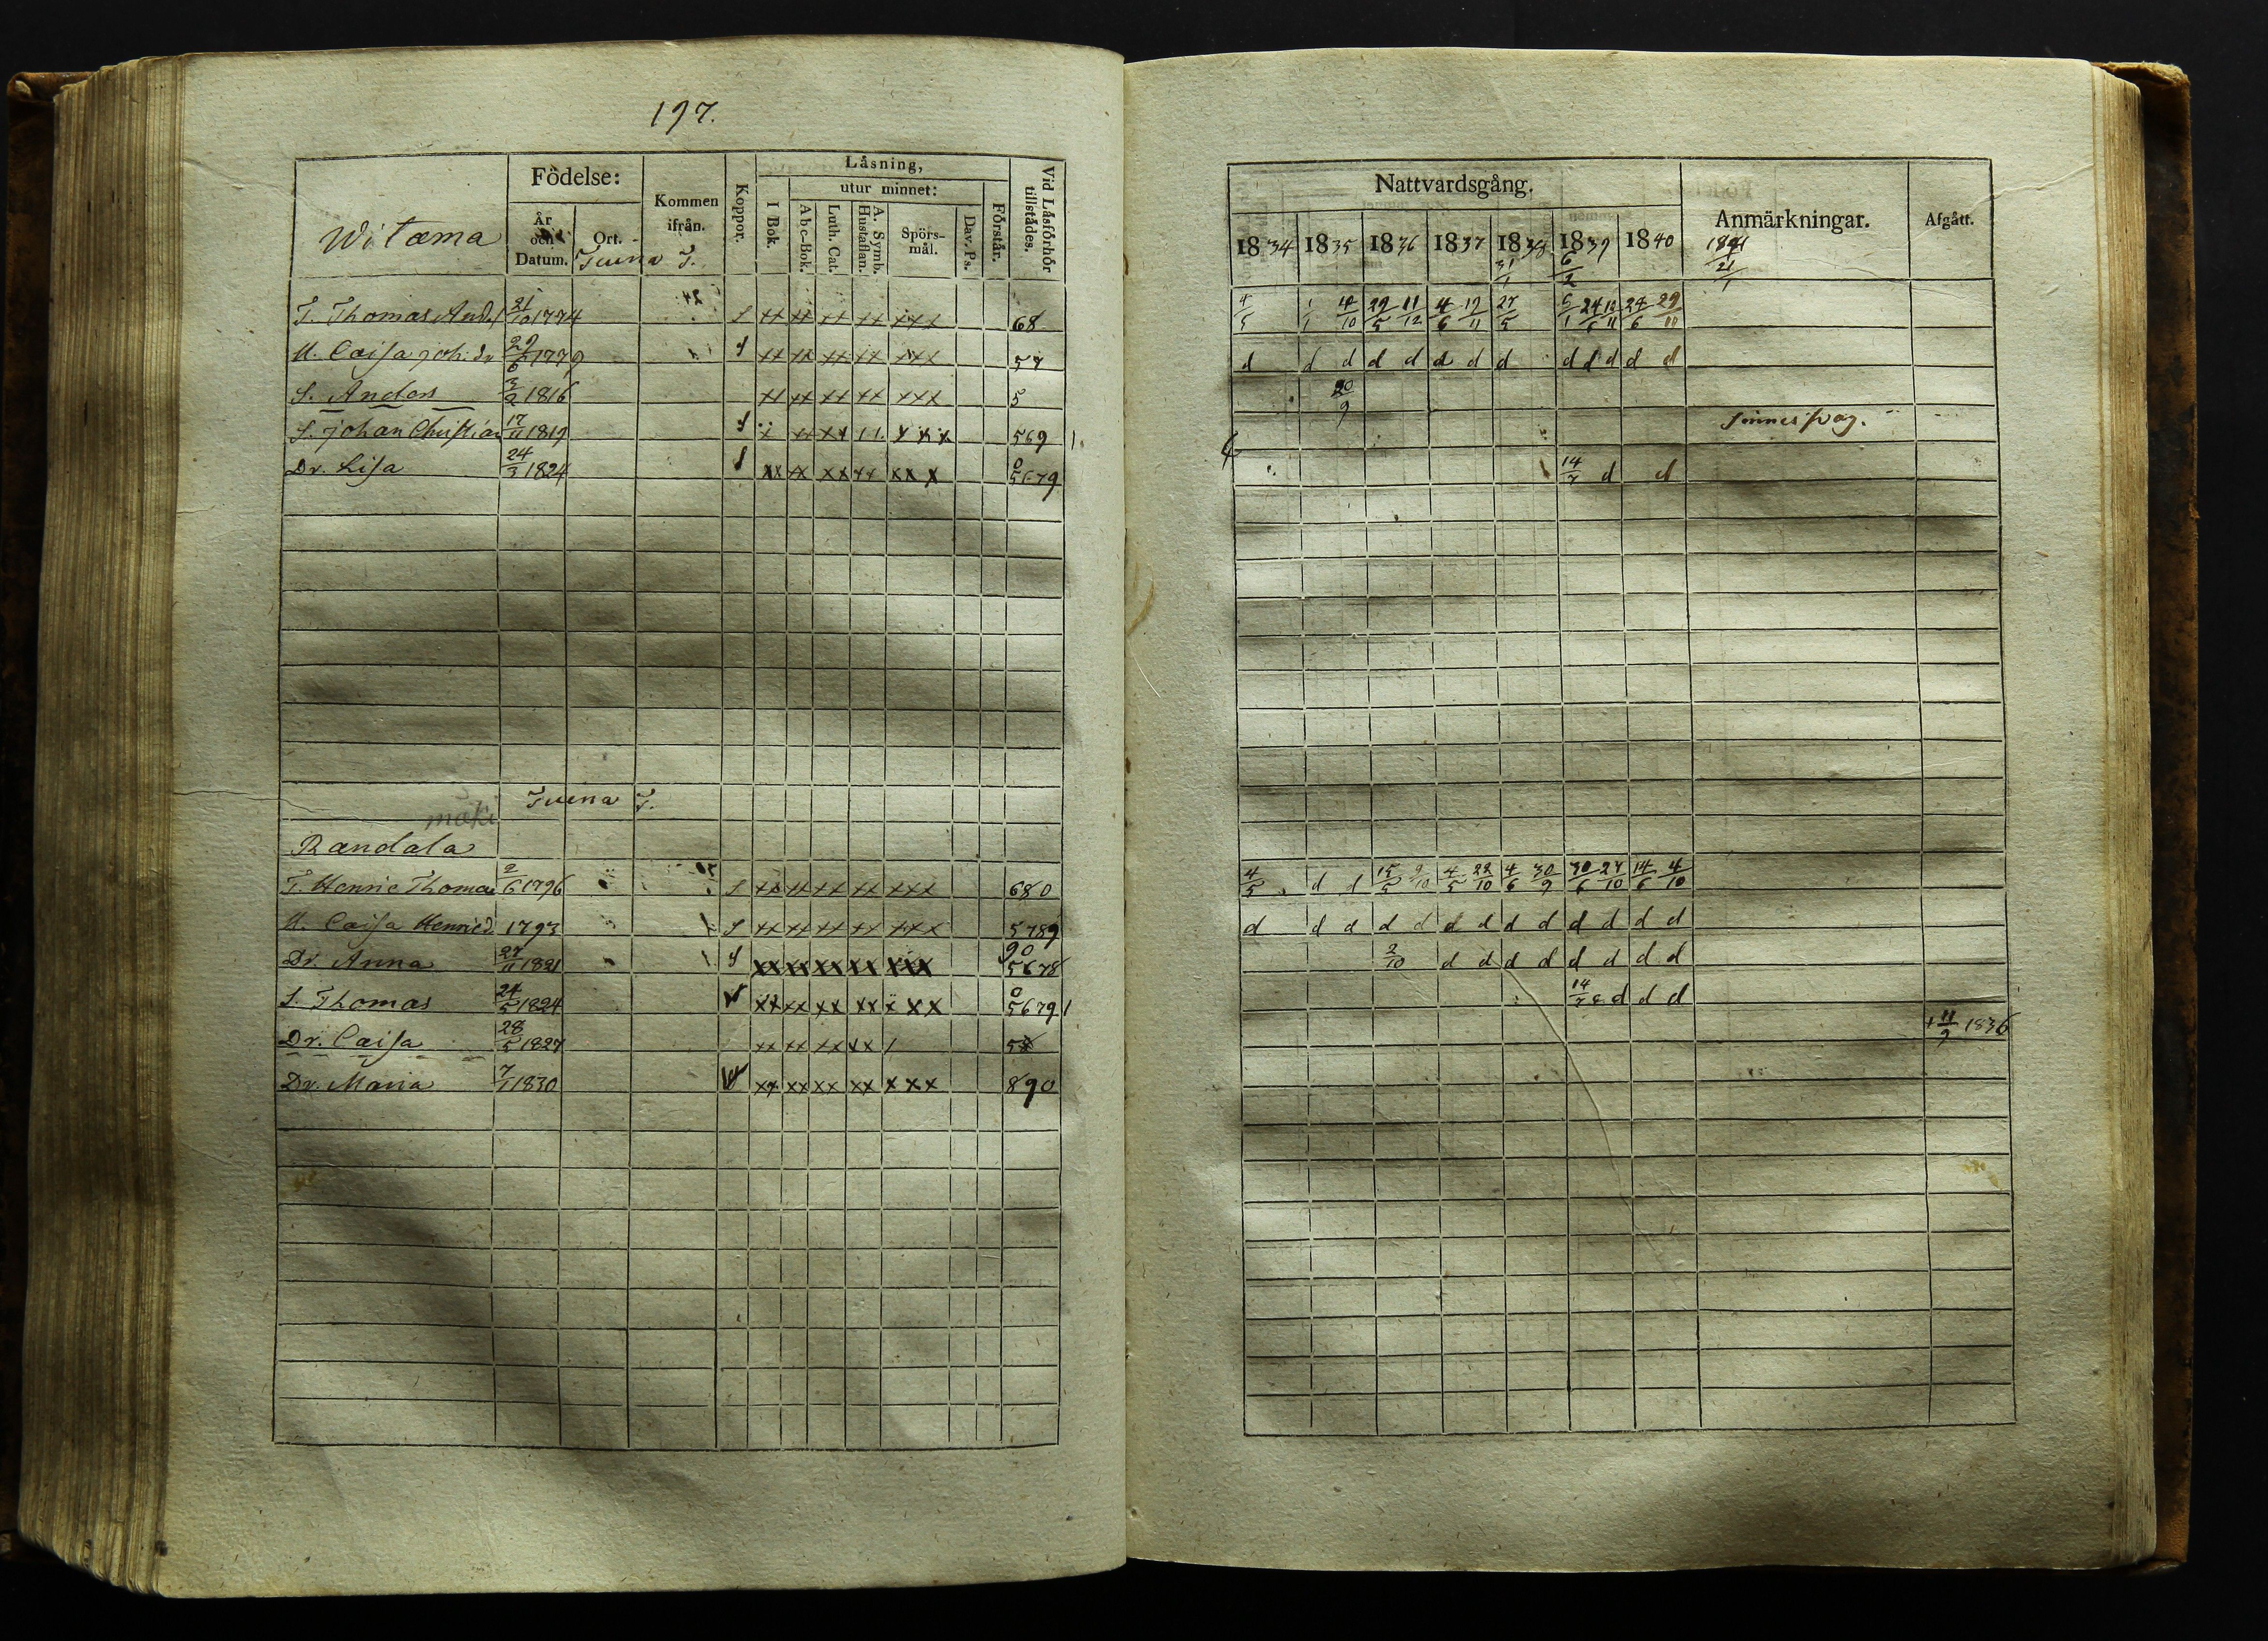 197.
Födelse:
Läsning,
utur minnet:
Kommen ifrån.
Koppor.
I Bok.
Abc-Bok.
Luth. Cat.
A. Symb. Hustaflan.
Spörs-mål.
Dav. Ps.
Förstår.
Vid Läsförhör tillstädes.
År och Datum.
Ort.
Witama
Tuena T.
T. Thomas And. 21/10 1774 xx xx xx xx xxx 68
H. Caisa Joh.dr 29/6 1779 xx xx xx xx xxx 57
S. Anders 3/2 1816 xx xx xx xx xxx 5
S. Johan Christian 17/11 1819 569
Dr. Lisa 24/3 1824 xx xx xx xx xxx 0 5679
Tuena T.
mäki
Randala
T. Henric Thomas 2/6 1796 xx xx xx xx xxx 680
H. Caisa Henricd. 1793 xx xx xx xx xxx 5789
Dr. Anna 27/11 1821 xx xx xx xx xxx 90 5678
S. Thomas 24/5 1824 xx xx xx xx x xx 0 5679 1
Dr. Caisa 28/5 1827 xx xx xx xx / 58
Dr. Maria 7/1 1830 xx xx xx xx xxx 890
Nattvardsgång.
Anmärkningar.
Afgått.
1834 1835 1836 1837 1838 1839 1840 1841
31/1 6/2 21/1
4/5 1/1 4/10 29/5 11/12 4/6 19/11 27/5 6/1 24/6 12/11 24/6 29/11
d d d d d d d d d d d d d
20/9
Sinnessvag.
14/7 d d
4/5 d d 15/5 2/10 4/5 22/10 4/6 30/9 30/6 27/10 14/6 4/10
d d d d d d d d d d d d d
2/10 d d d d d d d d
14/7 d d d
+ 11/9 1836